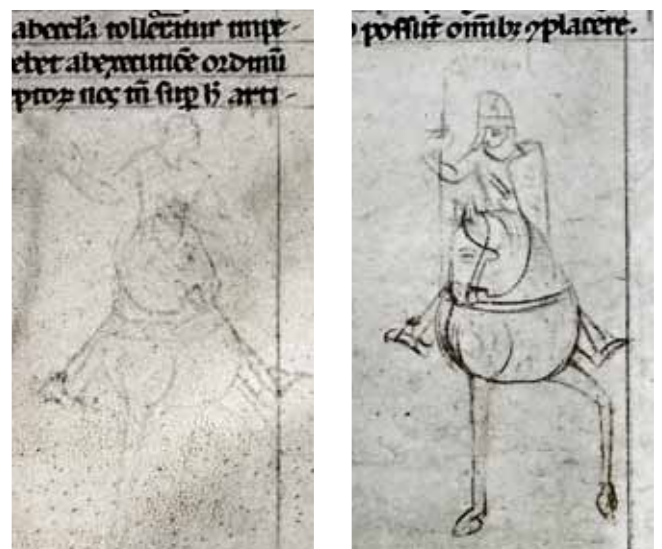 ab eccl'a tolleratur impe-
ebet ab executiōe ordinū
ptoꝝ nec tn̄ suꝑ h̄ arti-
possūt om̄ibꝫ ꝯplacere.